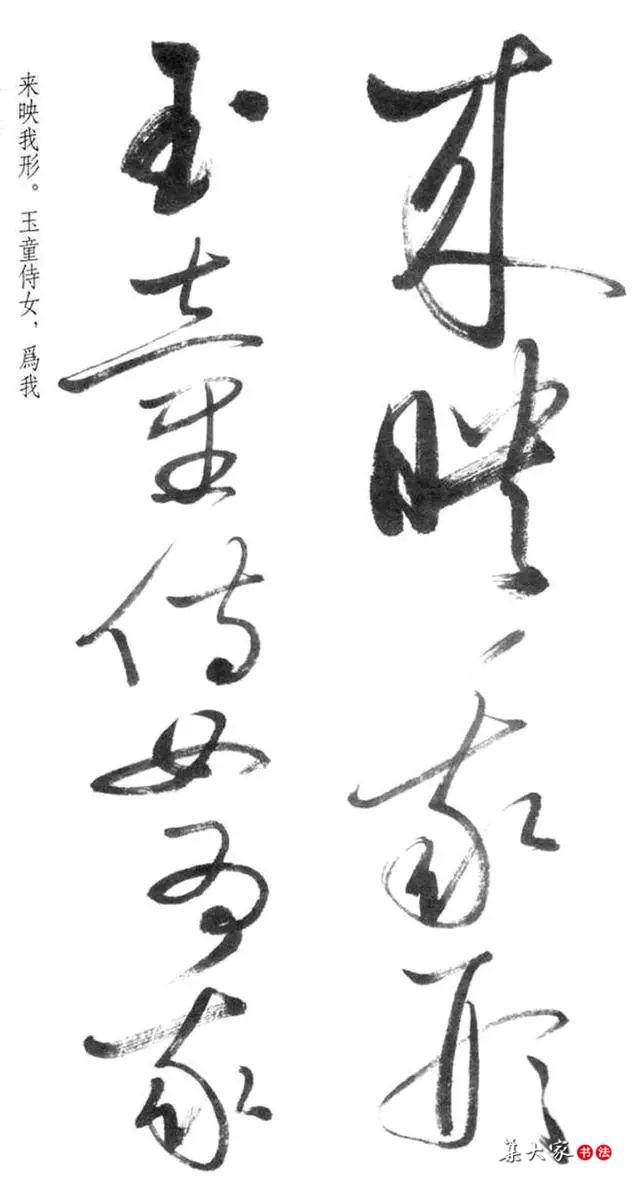 来映我形
玉童侍女為我
来映我形。玉童侍女，爲我
集大家书法